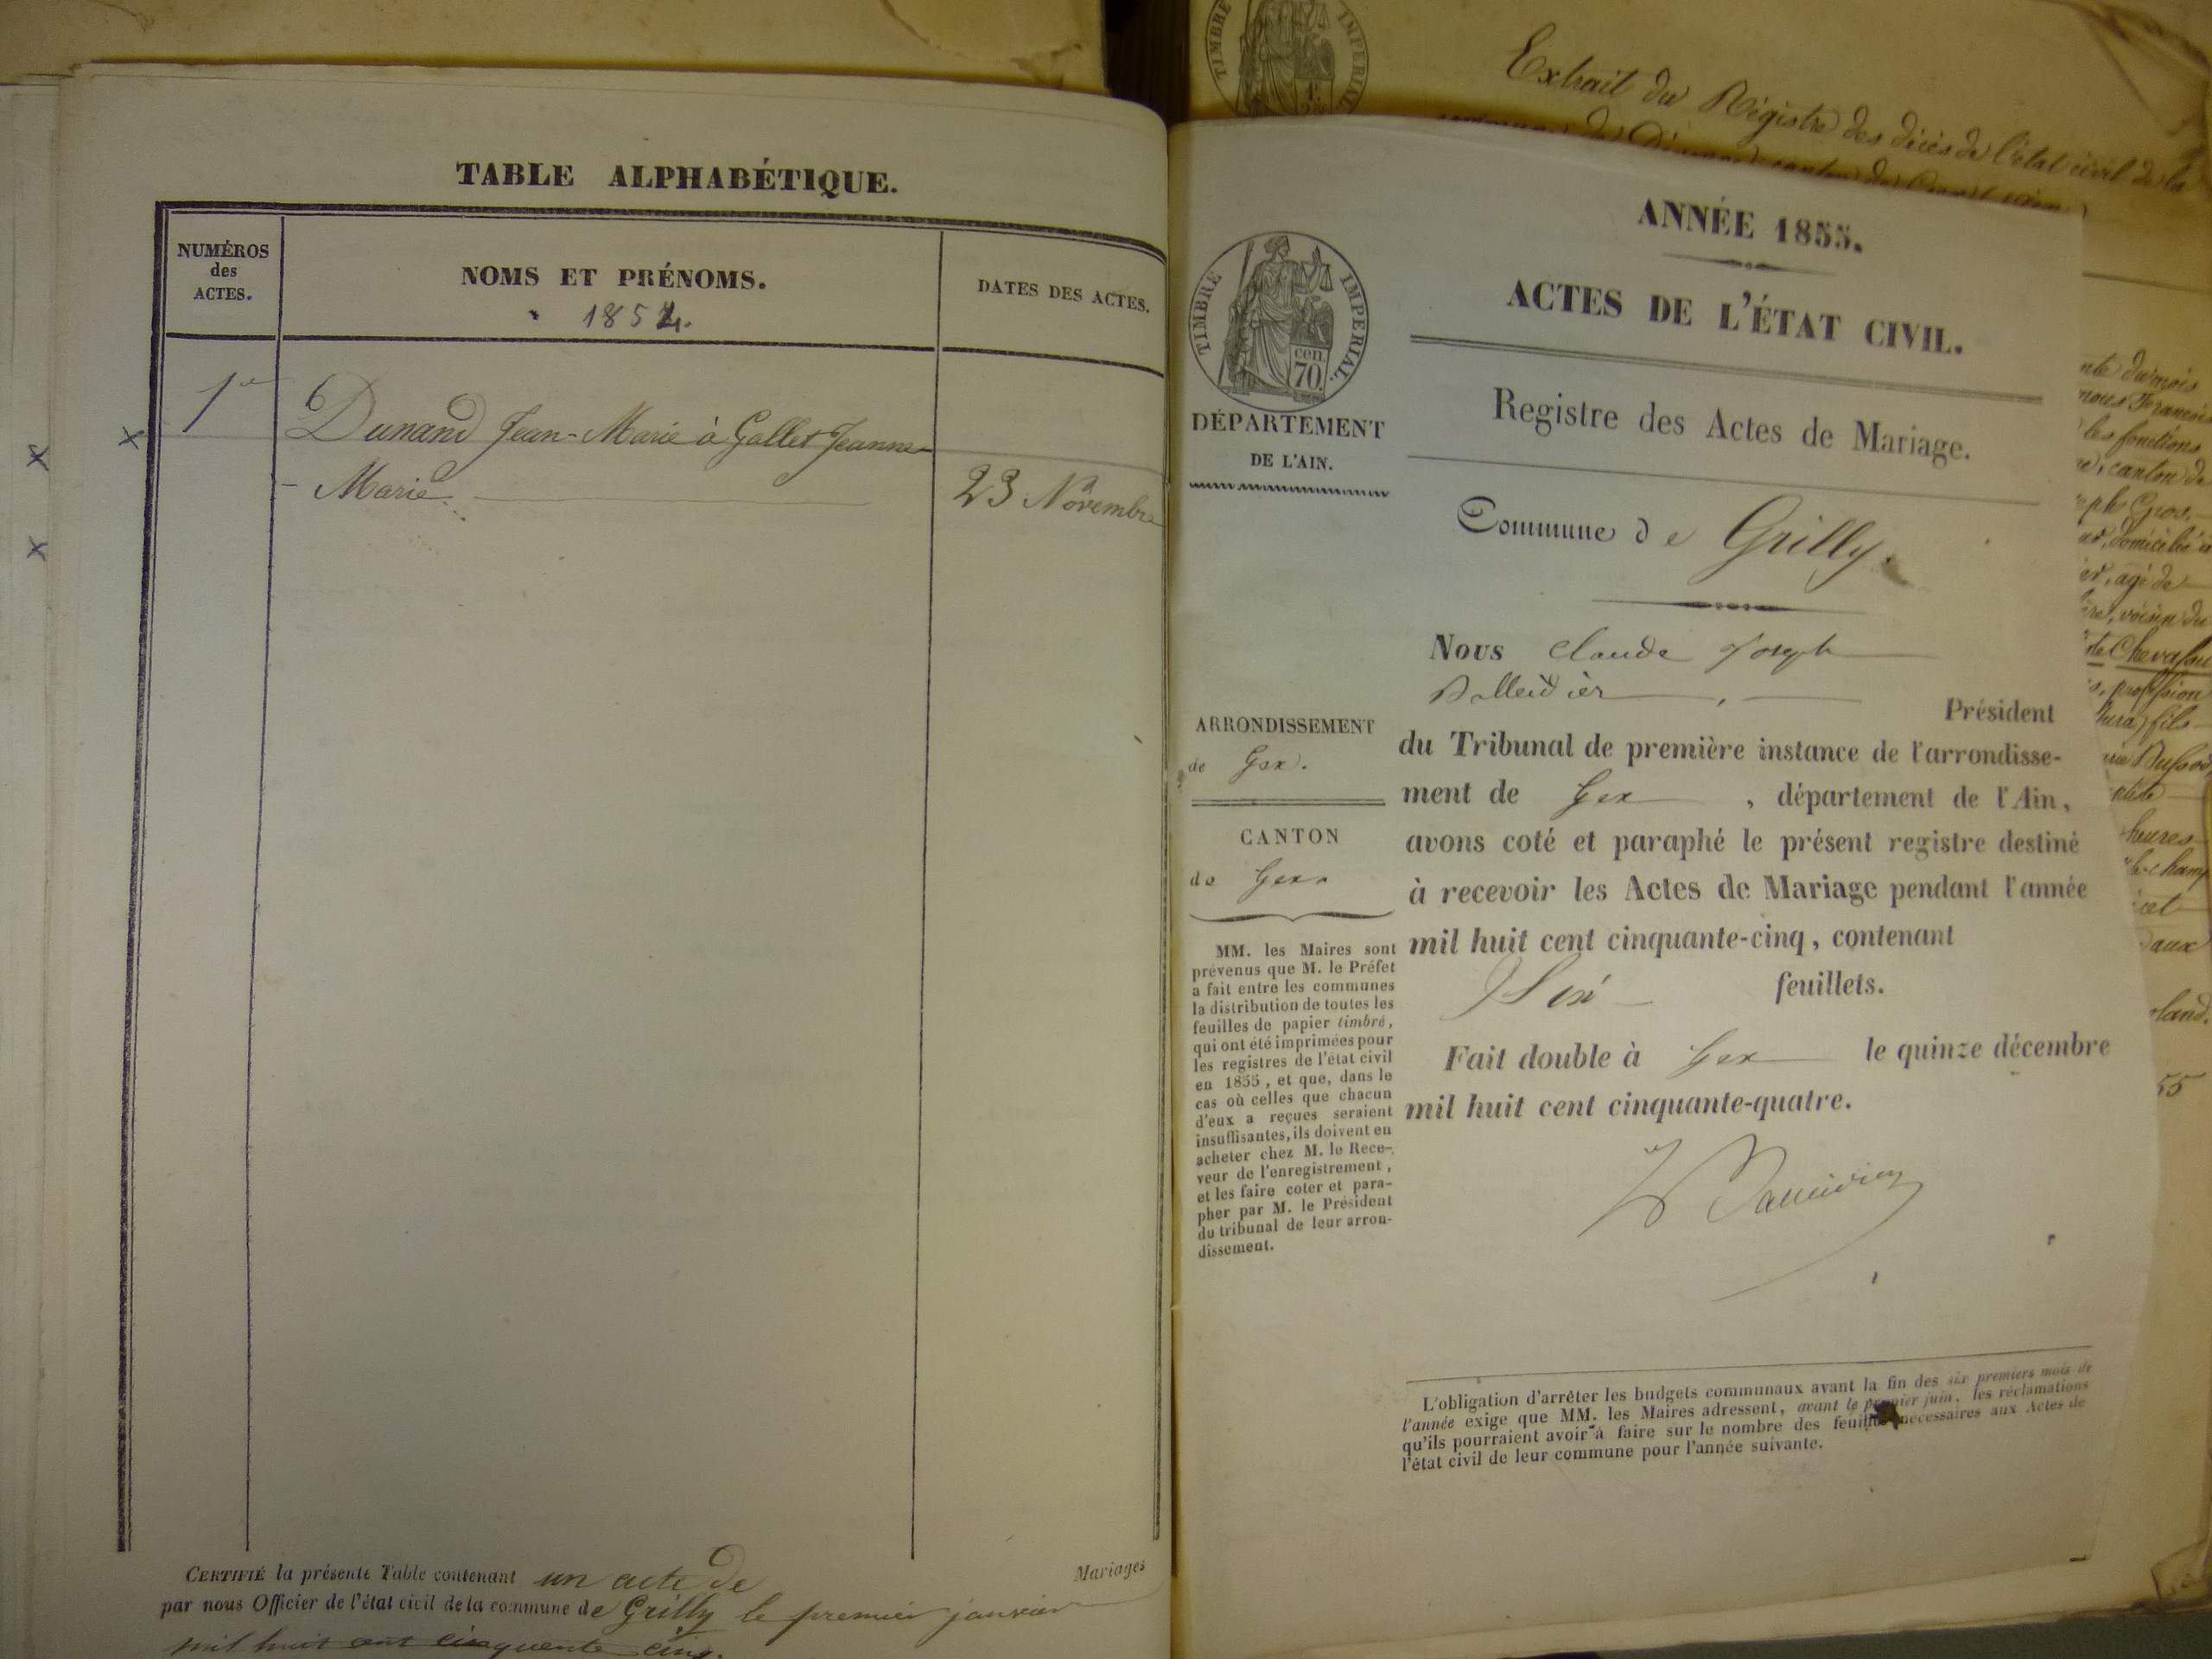 TABLE ALPHABÉTIQUE.
NUMÉROS
des
ACTES.
NOMS ET PRÉNOMS.
1854.
DATES DES ACTES.
1er
Dunand Jean-Marie à Gallet Jeanne
- Marie
23 Novembre
CERTIFIÉ la présente Table contenant un acte de Mariages
par nous Officier de l'état civil de la commune de Grilly le premier janvier
mil huit cent cinquante cinq.
TIMBRE IMPERIAL
1 F.
Extrait du Régistre des décès de l'état civil de la
ANNÉE 1855.
ACTES DE L'ÉTAT CIVIL.
Registre des Actes de Mariage.
TIMBRE IMPERIAL.
cen.
70.
DÉPARTEMENT
DE L'AIN.
Commune de Grilly.
Nous Claude Joseph
Président
du Tribunal de première instance de l'arrondisse-
ment de Gex, département de l'Ain,
avons coté et paraphé le présent registre destiné
à recevoir les Actes de Mariage pendant l'année
mil huit cent cinquante-cinq, contenant
Six feuillets.
Fait double à Gex le quinze décembre
mil huit cent cinquante-quatre.
ARRONDISSEMENT
de Gex.
CANTON
de Gex.
MM. les Maires sont
prévenus que M. le Préfet
a fait entre les communes
la distribution de toutes les
feuilles de papier timbré,
qui ont été imprimées pour
les registres de l'état civil
en 1855, et que, dans le
cas où celles que chacun
d'eux a reçues seraient
insuffisantes, ils doivent en
acheter chez M. le Rece-
veur de l'enregistrement,
et les faire coter et para-
pher par M. le Président
du tribunal de leur arron-
dissement.
L'obligation d'arrêter les budgets communaux avant la fin des six premiers mois de
l'année exige que MM. les Maires adressent, avant le premier juin, les réclamations
qu'ils pourraient avoir à faire sur le nombre des feuilles nécessaires aux Actes de
l'état civil de leur commune pour l'année suivante.
les fonctions
canton de
domicilié à
agé de
voisin du
profession
fils
heures
cet
aux
55